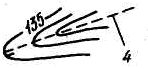 135
4